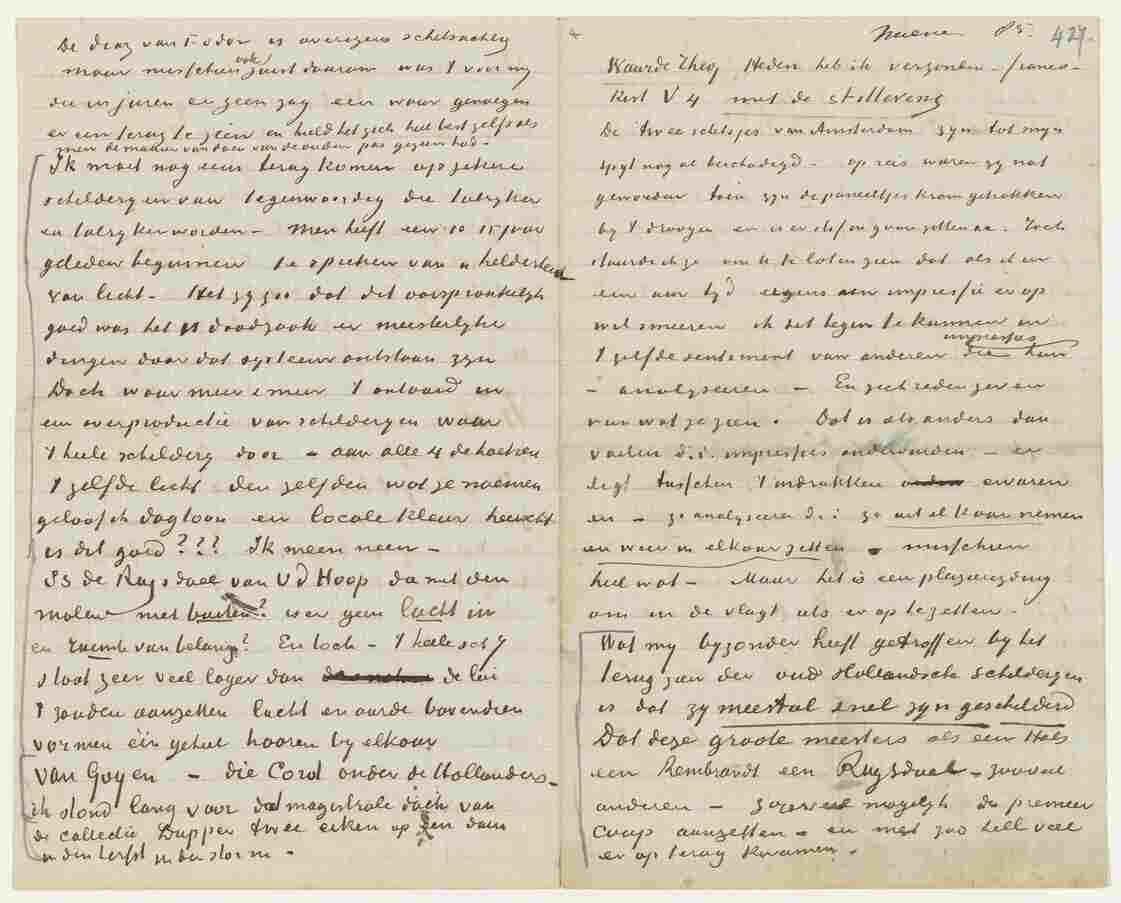 De Diaz van Fodor is overigens schetsachtig
maar misschien ook juist daarom was 't voor my
die in jaren er geen zag een waar genoegen
er een terug te zien en hield het zich heel best zelfs als
men de mannen van daar van de ouden pas gezien had -
Ik moet nog eens terug komen op zekere
schilderyen van tegenwoordig die talryker
en talryker worden - Men heeft een 10 15 jaar
geleden beginnen te spreken van "helderheid
van licht - Het zy zoo dat dit oorspronkelyk
goed was het is daadzaak er meesterlyke
dingen door dat systeem ontstaan zyn
Doch waar meer & meer 't ontaard in
een overproductie van schilderyen waar
't heele schildery door - aan alle 4 de hoeken
't zelfde licht den zelfden wat ze noemen
geloof ik dagtoon en locale kleur heerscht
is dit goed??? Ik meen neen -
Is de Ruysdael van V d Hoop die met den
molen niet buiten? is er geen lucht in
en ruimte van belang? En toch - 't heele schy
staat zeer veel lager dan de lui
't zouden aanzetten lucht en aarde bovendien
vormen één geheel hooren by elkaar
Van Goyen - die Corot onder de Hollanders -
ik stond lang voor dat magistrale doek van
de collectie Dupper twee eiken op een duin
in den herfst in den storm -
Nuenen 85. 427.
Waarde Theo, Heden heb ik verzonden - franco -
kist V 4 met de stillevens
De twee schetsjes van Amsterdam zyn tot myn
spyt nog al beschadigd - op reis waren zy nat
geworden toen zyn de paneeltjes krom getrokken
by 't droogen en is er stof in gaan zitten &c. Toch
stuurde ik ze om U te laten zien dat als ik in
een uur tyd ergens een impressie er op
wil smeeren ik dat begin te kunnen in
't zelfde sentiment van anderen die hun impressies
- analyseeren - En zich reden geven
van wat ze zien. Dat is iets anders dan
voelen d.i. impressies ondervinden - er
ligt tusschen 't indrukken ervaren
en - ze analyseeren d.i. ze uit elkaar nemen
en weer in elkaar zetten misschien
heel wat - Maar het is een plezierig ding
om in de vlugt iets er op te zetten -
Wat my byzonder heeft getroffen by het
terug zien der oud Hollandsche schilderyen
is dat zy meestal snel zyn geschilderd
Dat deze groote meesters als een Hals
een Rembrandt een Ruysdael - zooveel
anderen - zooveel mogelyk du premier
coup aanzetten - en niet zoo heel veel
er op terug kwamen -